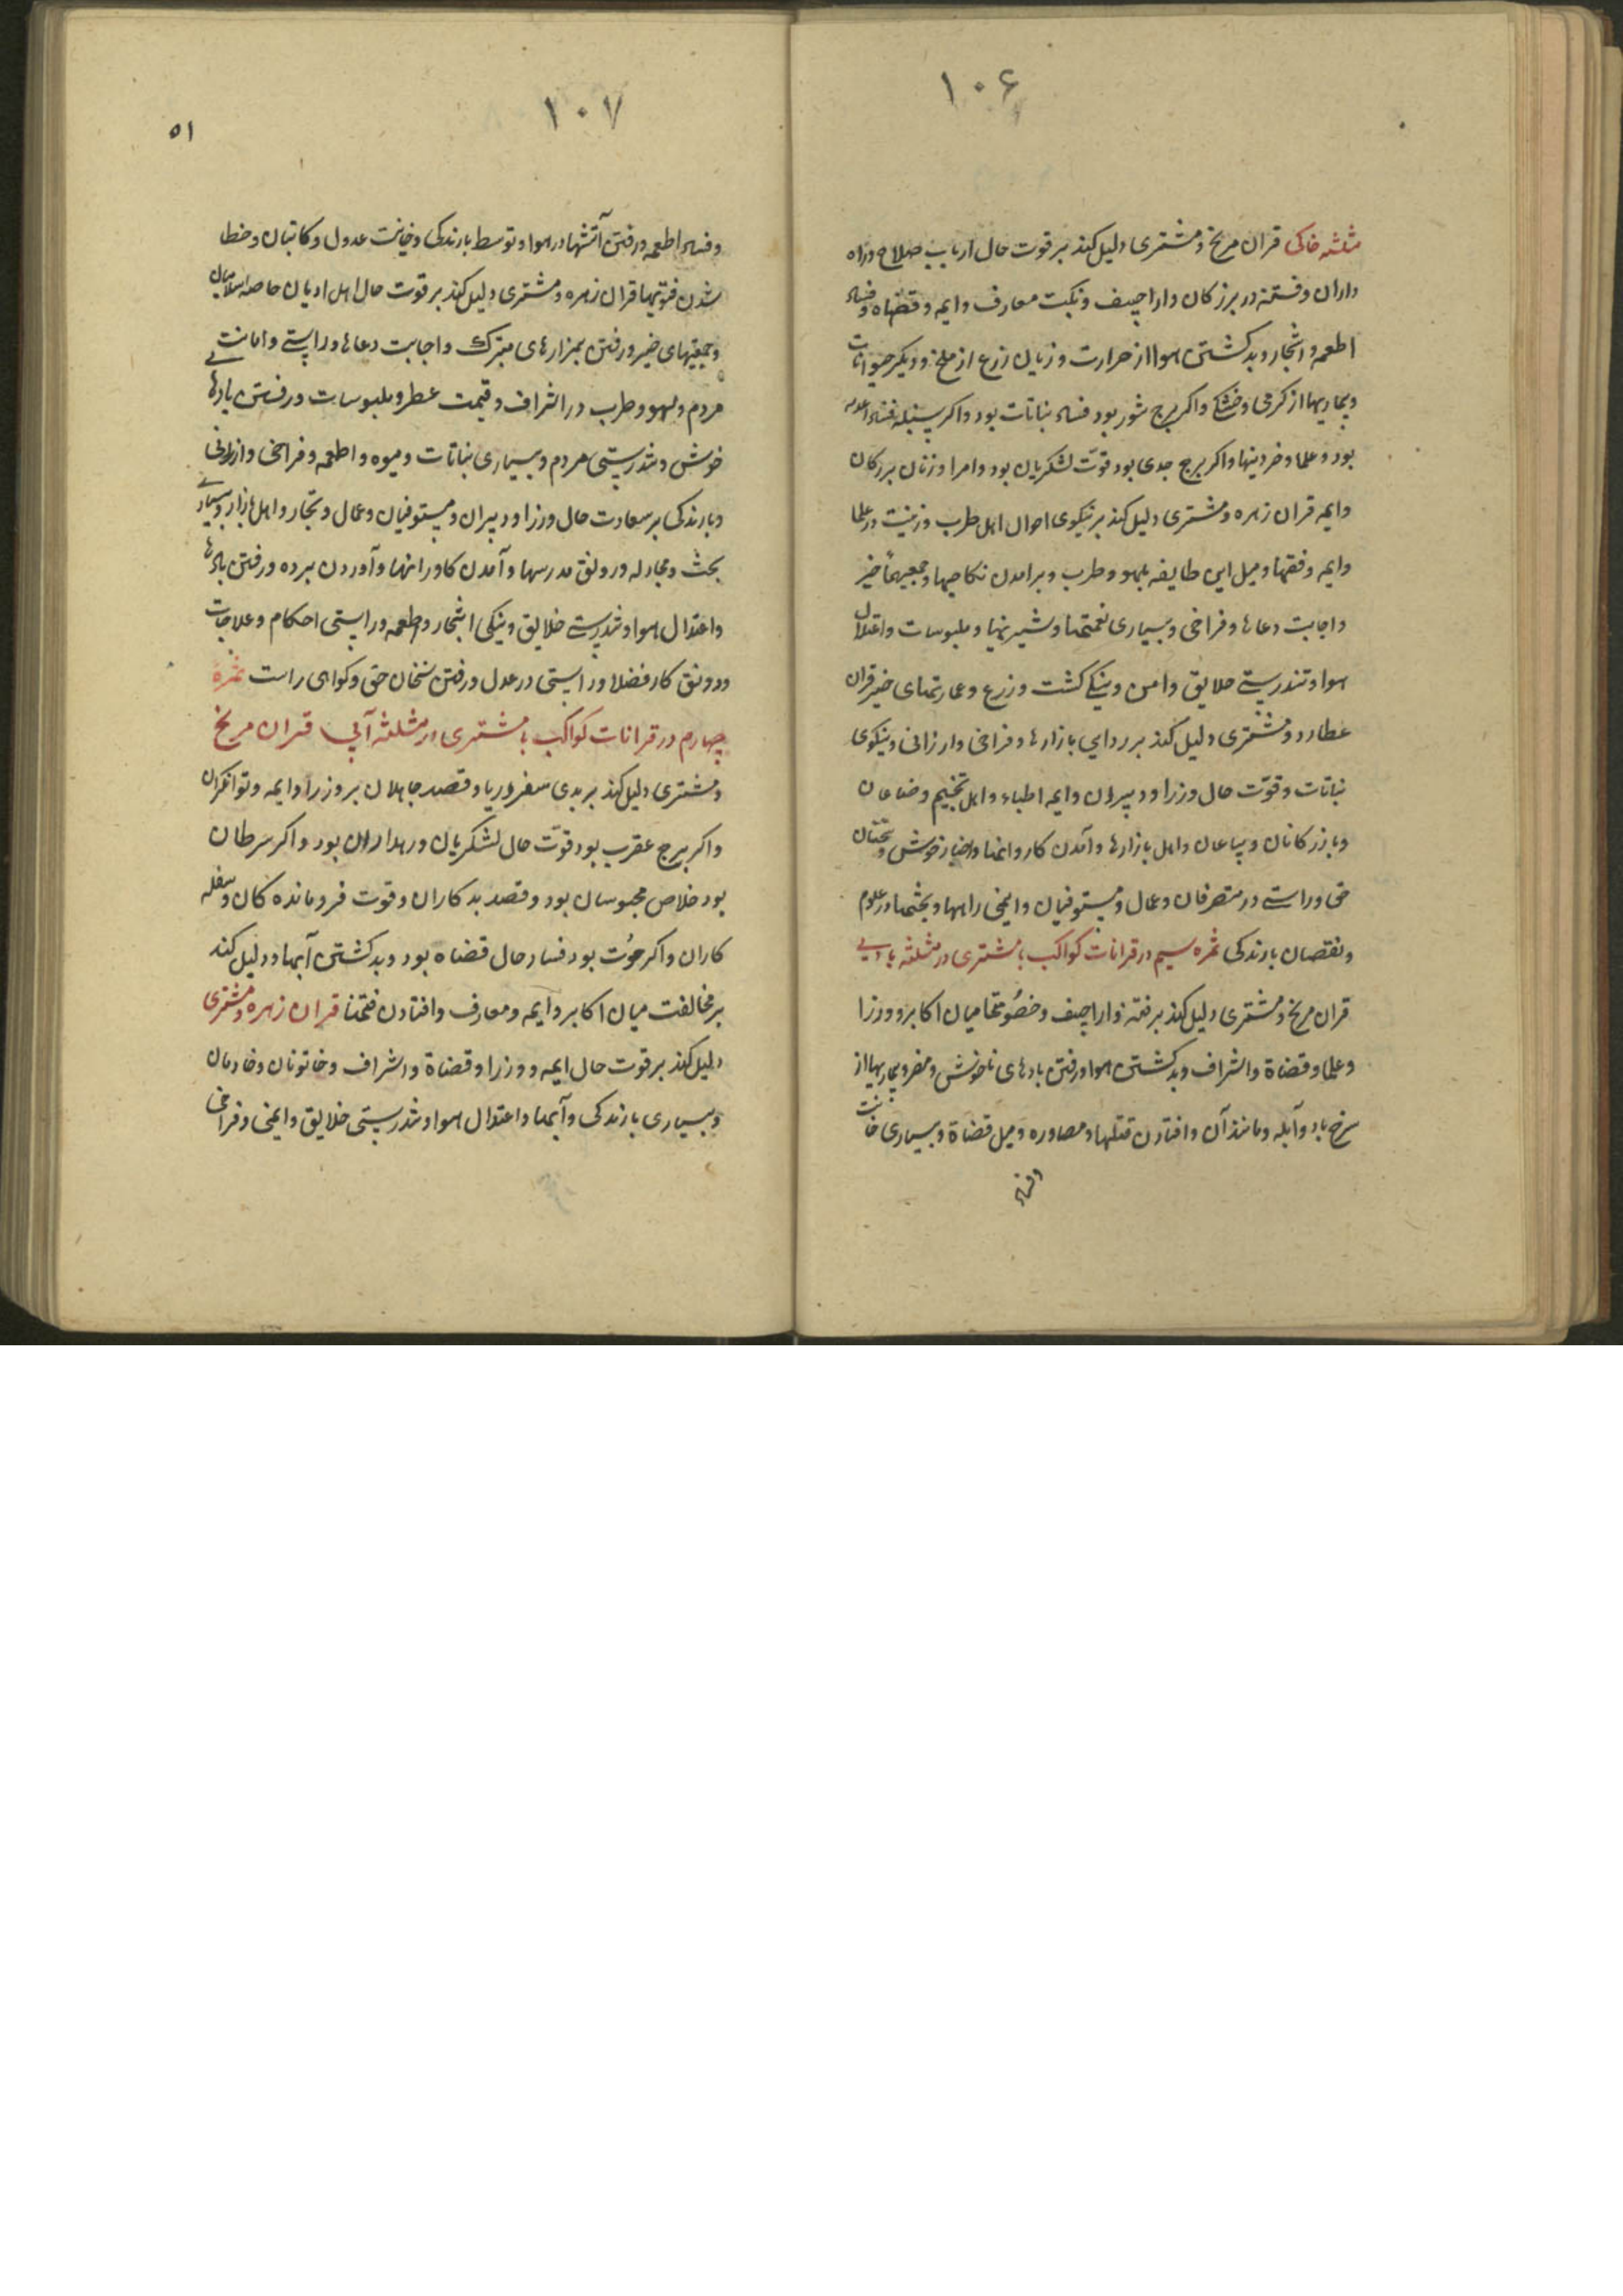 ۱۰۶
مثلثه خاکی قران مریخ و مشتری دلیل کند بر قوت حال ارباب صلاح و راه
داران و فتنه در بزرکان و اراجیف و نکبت معارف و ایمه و قضاه و فساد
اطعمه و اشجار و بد کشتن هوا از حرارت و زیان زرع از ملخ و دیکر حیوانات
و بیماریها از کرمی و خشکی و اکر برج ثور بود فساد نباتات بود و اکر سنبله فساد
بود و علما و خردینها و اکر برج جدی بود قوّت لشکریان بود و امرا و زنان بزرکان
و ایمه قران زهره و مشتری دلیل کند بر نیکوی احوال اهل طرب و زینت در علما
و ایمه و فقها و میل این طایفه بلهو و طرب و برامدن نکاحیها و جمعیتها خیر
و اجابت دعاها و فراخی و بسیاری نعمتها و شیرینها و ملبوسات و اعتدال
هوا و تندرستی خلایق و امن و نیکی کشت و زرع و عمارتهای خیر قران
عطارد و مشتری دلیل کند بر روایی بازارها و فراخی و ارزانی و نیکوی
نباتات و قوّت حال وزرا و دبیران و ایمه اطباء و اهل تنجیم و صناعان
و بازرکانان و بیاعان و اهل بازارها و آمدن کاروانها و اخبار خوش و سخنان
حق و راستی در متصرفان و عمال و مستوفیان و ایمنی راهها و بحثها در علوم
و نقصان بارندکی ثمره سیم در قرانات کواکب با مشتری در مثلثه بادیی
قران مریخ و مشتری دلیل کند بر فتنه و اراجیف و خصُومتها میان اکابر و وزرا
و علما و قضاة و اشراف و بد کشتن هوا و رفتن بادهای ناخوش و مضر و بیماریها از
سرخ باد و آبله و مانند آن و افتادن قتلها و مصادره و میل قضاة و بسیاری خیانت
و فساد
۱۰۷
۵۱
و فساد اطعمه و رفتن آتشها در هوا و توسط بارندکی و خیانت عدول و کاتبان و خطا
شدن فتویها قران زهره و مشتری دلیل کند بر قوت حال اهل ادیان خاصه اسلامیان
و جمعیتهای خیر و رفتن بمزارهای متبرک و اجابت دعاها و راستی و امانت
مردم و لهو و طرب در اشراف و قیمت عطر و ملبوسات و رفتن بادهای
خوش و تندرستی مردم و بسیاری نباتات و میوه و اطعمه و فراخی و ارزانی
و بارندکی بر سعادت حال وزرا و دبیران و مستوفیان و عمال و تجار و اهل بازار و بسیاری
بحث و مجادله و رونق مدرسها و آمدن کاروانها و آوردن برده و رفتن بادها
و اعتدال هوا و تندرستی خلایق و نیکی اشجار و اطعمه و راستی احکام و علاجات
و رونق کار فضلا و راستی در عدل و رفتن سخنان حق و کواهی راست ثمرهٔ
چهارم در قرانات کواکب با مشتری در مثلثه آبی قران مریخ
و مشتری دلیل کند بر بدی سفر دریا و قصد جاهلان بر وزرا و ایمه و توانکران
و اکر برج عقرب بود قوّت حال لشکریان و رهداران بود و اکر سرطان
بود خلاص محبوسان بود و قصد بدکاران و قوت فرومانده کان و سفله
کاران و اکر حُوت بود فساد حال قضاه بود و بد کشتن آبها و دلیل کند
بر مخالفت میان اکابر و ایمه و معارف و افتادن فتنها قران زهره و مشتری
دلیل کند بر قوت حال ایمه و وزرا و قضاة و اشراف و خاتونان و خادمان
و بسیاری بارندکی و آبها و اعتدال هوا و تندرستی خلایق و ایمنی و فراخی